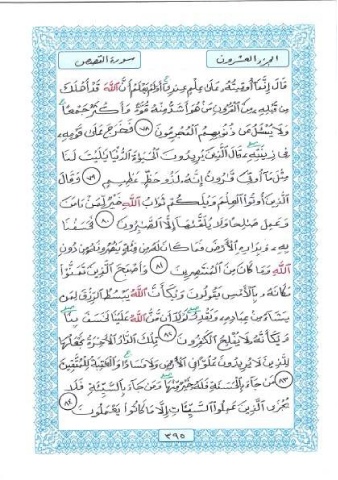 الجزء العشرون
سورة القصص
قَالَ إِنَّمَا أُوتِيتُهُ عَلَىٰ عِلْمٍ عِندِي أَوَلَمْ يَعْلَمْ أَنَّ اللَّهَ قَدْ أَهْلَكَ
مِن قَبْلِهِ مِنَ الْقُرُونِ مَنْ هُوَ أَشَدُّ مِنْهُ قُوَّةً وَأَكْثَرُ جَمْعًا
وَلَا يُسْأَلُ عَن ذُنُوبِهِمُ الْمُجْرِمُونَ ٧٨ فَخَرَجَ عَلَىٰ قَوْمِهِ
فِي زِينَتِهِ قَالَ الَّذِينَ يُرِيدُونَ الْحَيَاةَ الدُّنْيَا يَا لَيْتَ لَنَا
مِثْلَ مَا أُوتِيَ قَارُونُ إِنَّهُ لَذُو حَظٍّ عَظِيمٍ ٧٩ وَقَالَ
الَّذِينَ أُوتُوا الْعِلْمَ وَيْلَكُمْ ثَوَابُ اللَّهِ خَيْرٌ لِّمَنْ ءَامَنَ
وَعَمِلَ صَالِحًا وَلَا يُلَقَّاهَا إِلَّا الصَّابِرُونَ ٨٠ فَخَسَفْنَا
بِهِ وَبِدَارِهِ الْأَرْضَ فَمَا كَانَ لَهُ مِن فِئَةٍ يَنصُرُونَهُ مِن دُونِ
اللَّهِ وَمَا كَانَ مِنَ الْمُنتَصِرِينَ ٨١ وَأَصْبَحَ الَّذِينَ تَمَنَّوْا
مَكَانَهُ بِالْأَمْسِ يَقُولُونَ وَيْكَأَنَّ اللَّهَ يَبْسُطُ الرِّزْقَ لِمَن
يَشَاءُ مِنْ عِبَادِهِ وَيَقْدِرُ لَوْلَا أَن مَّنَّ اللَّهُ عَلَيْنَا لَخَسَفَ بِنَا
وَيْكَأَنَّهُ لَا يُفْلِحُ الْكَافِرُونَ ٨٢ تِلْكَ الدَّارُ الْآخِرَةُ نَجْعَلُهَا
لِلَّذِينَ لَا يُرِيدُونَ عُلُوًّا فِي الْأَرْضِ وَلَا فَسَادًا وَالْعَاقِبَةُ لِلْمُتَّقِينَ
٨٣ مَن جَاءَ بِالْحَسَنَةِ فَلَهُ خَيْرٌ مِّنْهَا وَمَن جَاءَ بِالسَّيِّئَةِ فَلَا
يُجْزَى الَّذِينَ عَمِلُوا السَّيِّئَاتِ إِلَّا مَا كَانُوا يَعْمَلُونَ ٨٤
٣٩٥